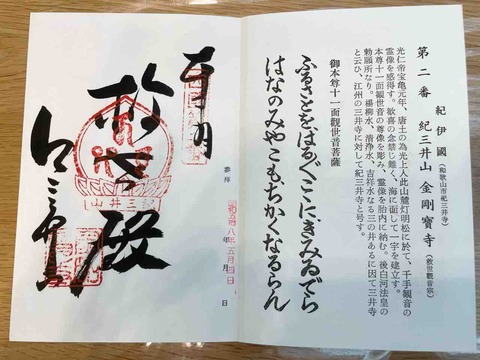 第二番 紀伊國(和歌山市紀三井寺) 紀三井山 金剛寶寺(救世觀音宗)
光仁帝宝亀元年、唐土の為光上人此山麓灯明松に於て、千手観音の
霊像を感得す。歓喜の念禁じ難く、海に面して一宇を建立す。
本尊十一面観世音の尊像を彫み、霊像を胎内に納む。後白河法皇の
勅願所なり。楊柳水、清浄水、吉祥水なる三の井あるに因て三井寺
と云ひ、江州の三井寺に対して紀三井寺と号す。
御本尊十一面觀世音菩薩
ふるさとをはるばるここにきみゐでら
はなのみやこもちかくなるらん
奉拝
年 月 日
五月四日
紀三井山